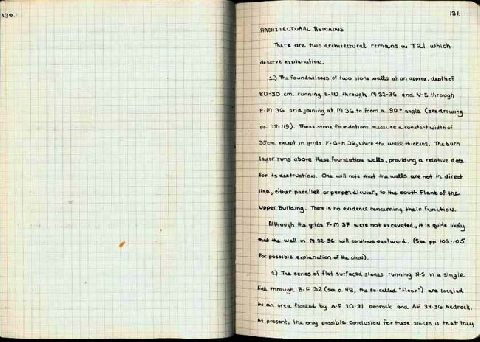 130.
131.
ARCHITECTURAL REMAINS
There are two architectural remains in T21 which
deserve explanation.
1) The foundations of two stone walls at an approx. depth of
20-30 cm. running E-W through M 32-36 and N-S through
F-M 36 and joining at M 36 to form a 90° angle (see drawing
pp. 118-119). These stone foundations measure a constant width of
50 cm except in grids 36, where the wall thickens. The burn
layer runs above these foundation walls, providing a relative date
for its destruction. One will note that the walls are not in direct
line, either parallel or perpendicular, to the south flank of the
Upper Building. There is no evidence concerning their function.
Although the grids F-M 37 were not excavated, it is quite likely
that the wall in M 32-36 will continue eastward. (See pp. 103-105
for possible explanation of the wall).
2) The series of flat surfaced stones running N-S in a single
file through A-G 32 (see p. the so-called "floor") are located
in an area flanked by A-G 30-31 bedrock and 34-36 bedrock.
At present, the only possible conclusion for these stones is that they